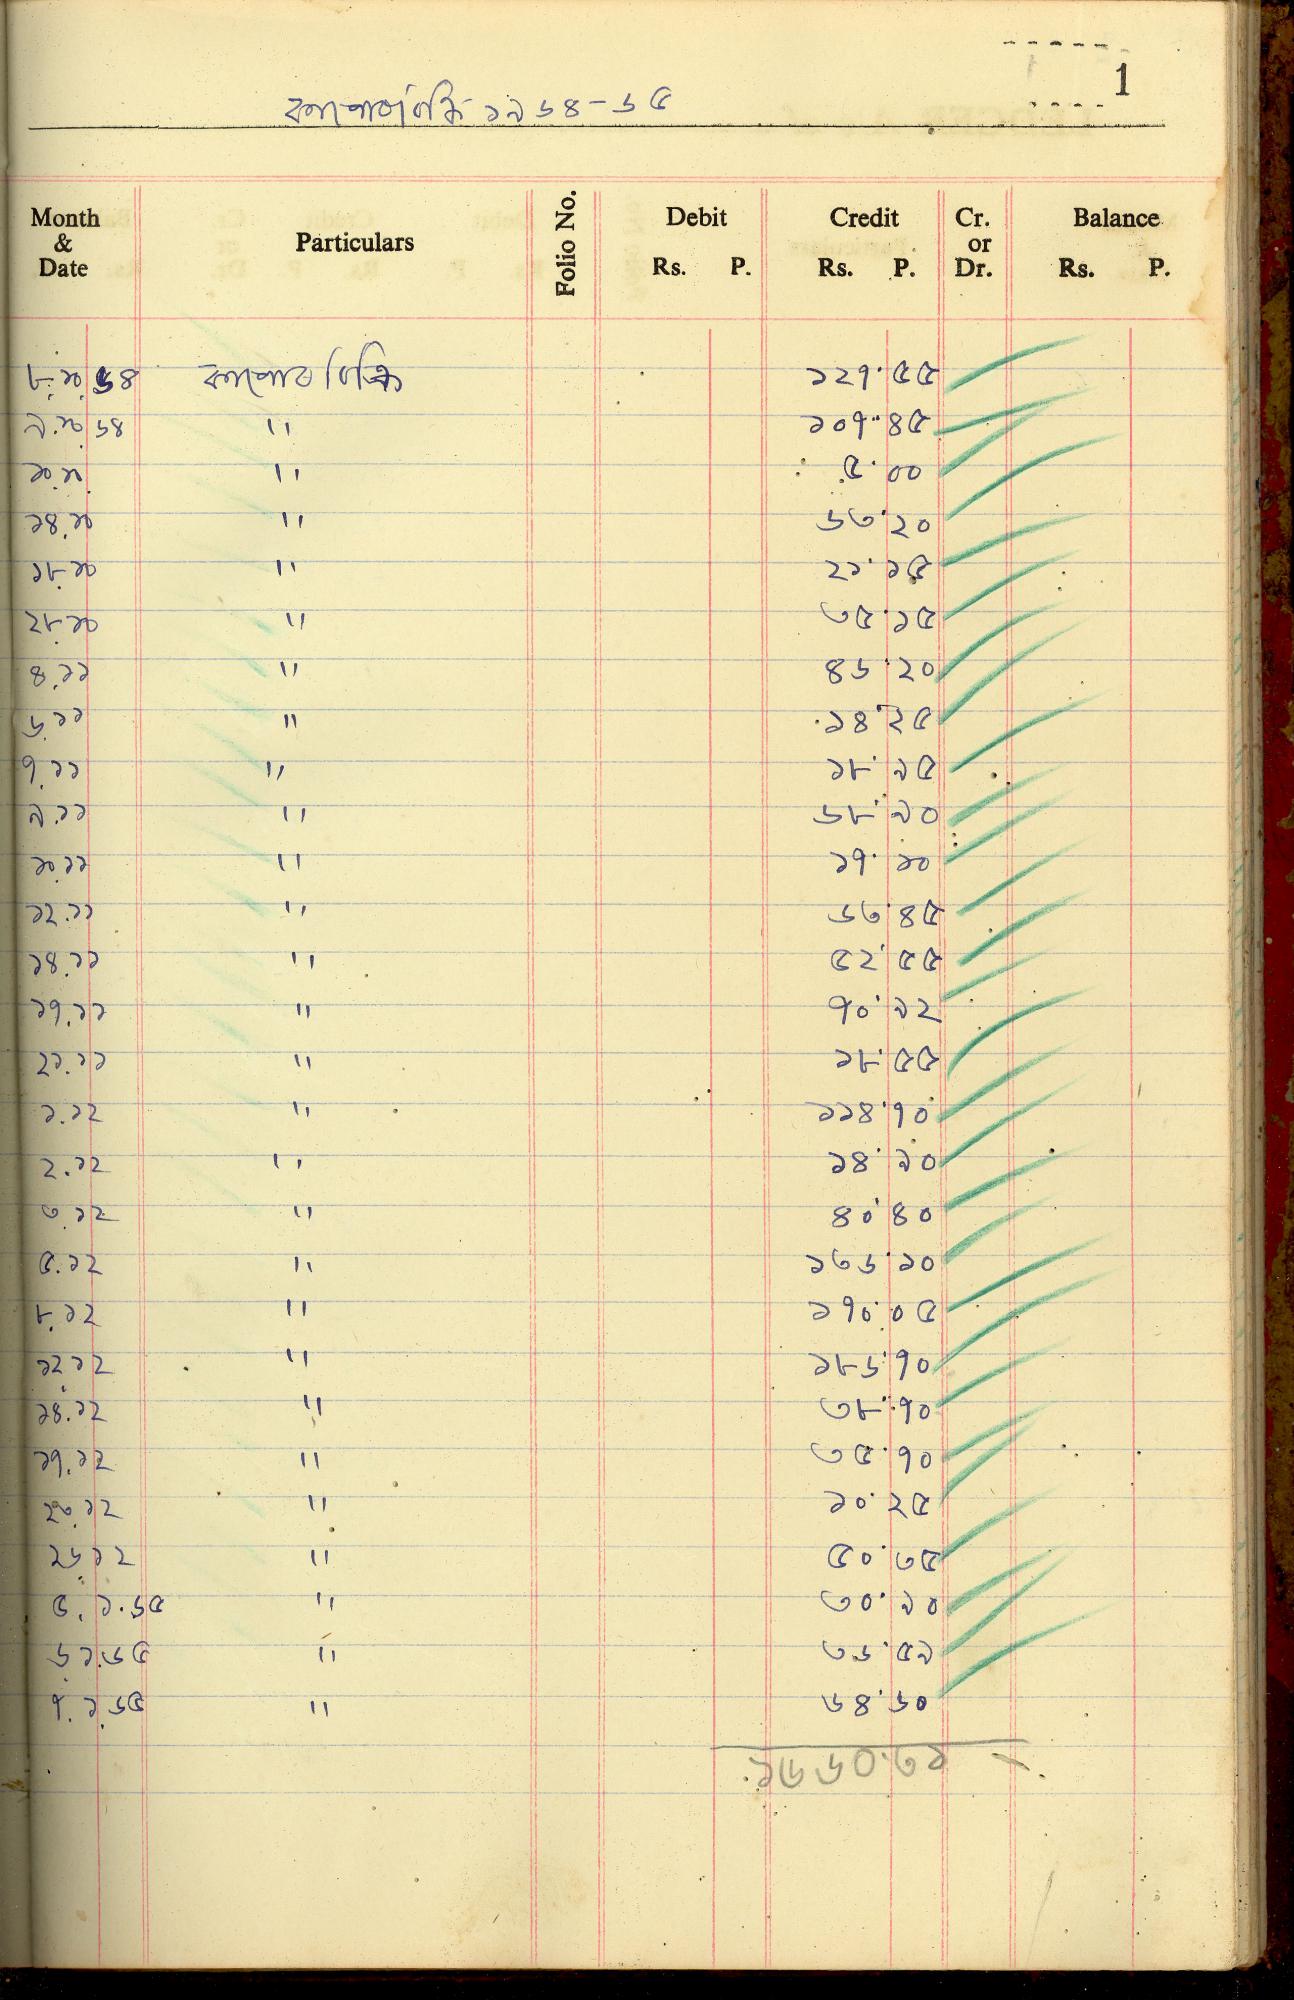 1
ক্যাশে বিক্রি ১৯৬৪-৬৫
Month & Date Particulars Folio No. Debit Rs. P. Credit Rs. P. Cr. or Dr. Balance Rs. P.
৮.১০.৬৪ ক্যাশে বিক্রি ১২৭.৫৫
৯.১০.৬৪ " ১০৭.৪৫
১০.১০. " ৫.০০
১৪.১০ " ৬৩.২০
১৮.১০ " ২১.১৫
২৮.১০ " ৩৫.১৫
৪.১১ " ৪৬.২০
৬.১১ " ১৪.২৫
৭.১১ " ১৮.১৫
৯.১১ " ৬৮.১০
১০.১১ " ১৭.১০
১২.১১ " ৬৩.৪৫
১৪.১১ " ৫২.৫৫
১৭.১১ " ৭০.১২
২১.১১ " ১৮.৫৫
১.১২ " ১১৪.৭০
২.১২ " ১৪.১০
৩.১২ " ৪০.৪০
৫.১২ " ১৩৬.১০
৮.১২ " ১৭০.০৫
১২.১২ " ১৮৬.৭০
১৪.১২ " ৩৮.৭০
১৭.১২ " ৩৫.৭০
২৩.১২ " ১০.২৫
২৬.১২ " ৫০.৩৫
৫.১.৬৫ " ৩০.১০
৬.১.৬৫ " ৩৬.৫১
৭.১.৬৫ " ৬৪.৬০
১৬৬০.৩১